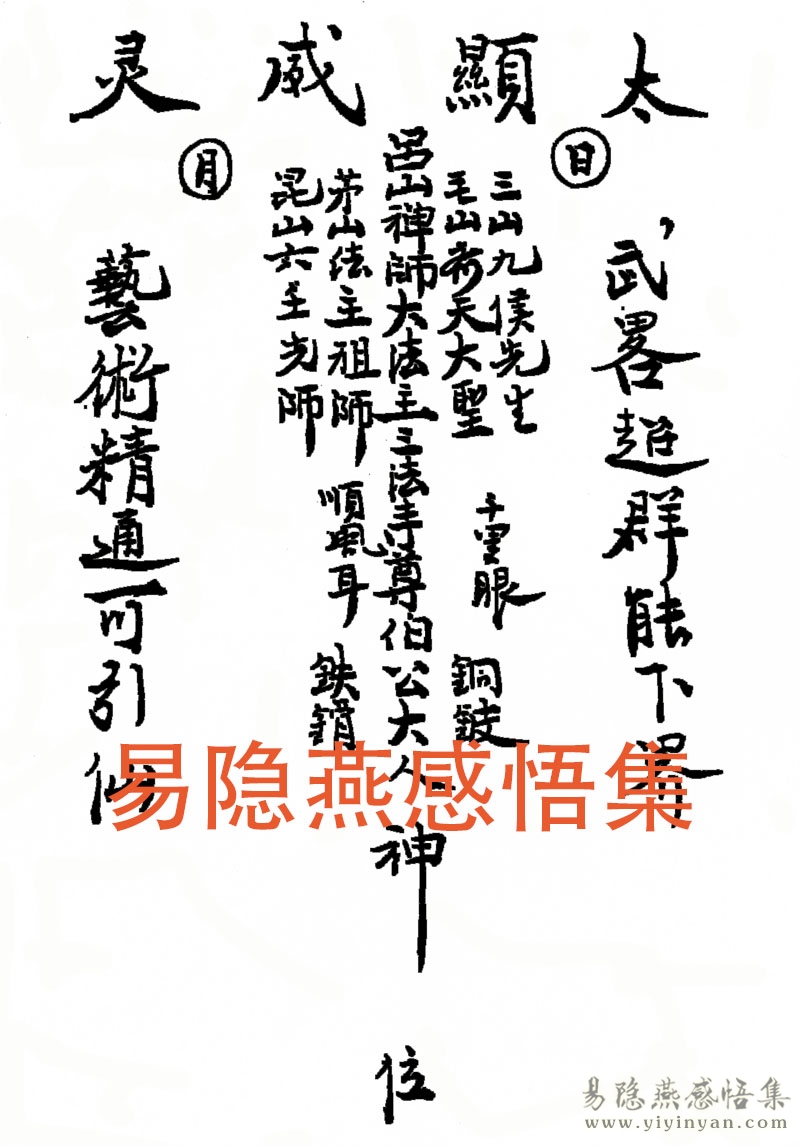 太顯威灵
日
月
武畧超群能下界
三山九侯先生
毛山齐天大聖
千里眼
銅鈹
呂山禅師大法主三法手尊伯公大人神位
茅山法主祖師
昆山六壬先師
順風耳
鉄銷
藝術精通可引仙
易隐燕感悟集
易隐燕感悟集
www.yiyinyan.com